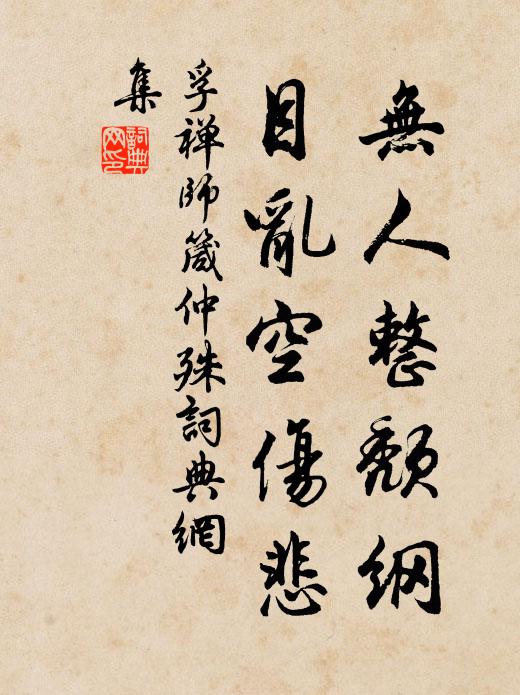 無人整頹綱
目亂空傷悲
孚禪師箴仲殊詞典網
集
詞典
网印